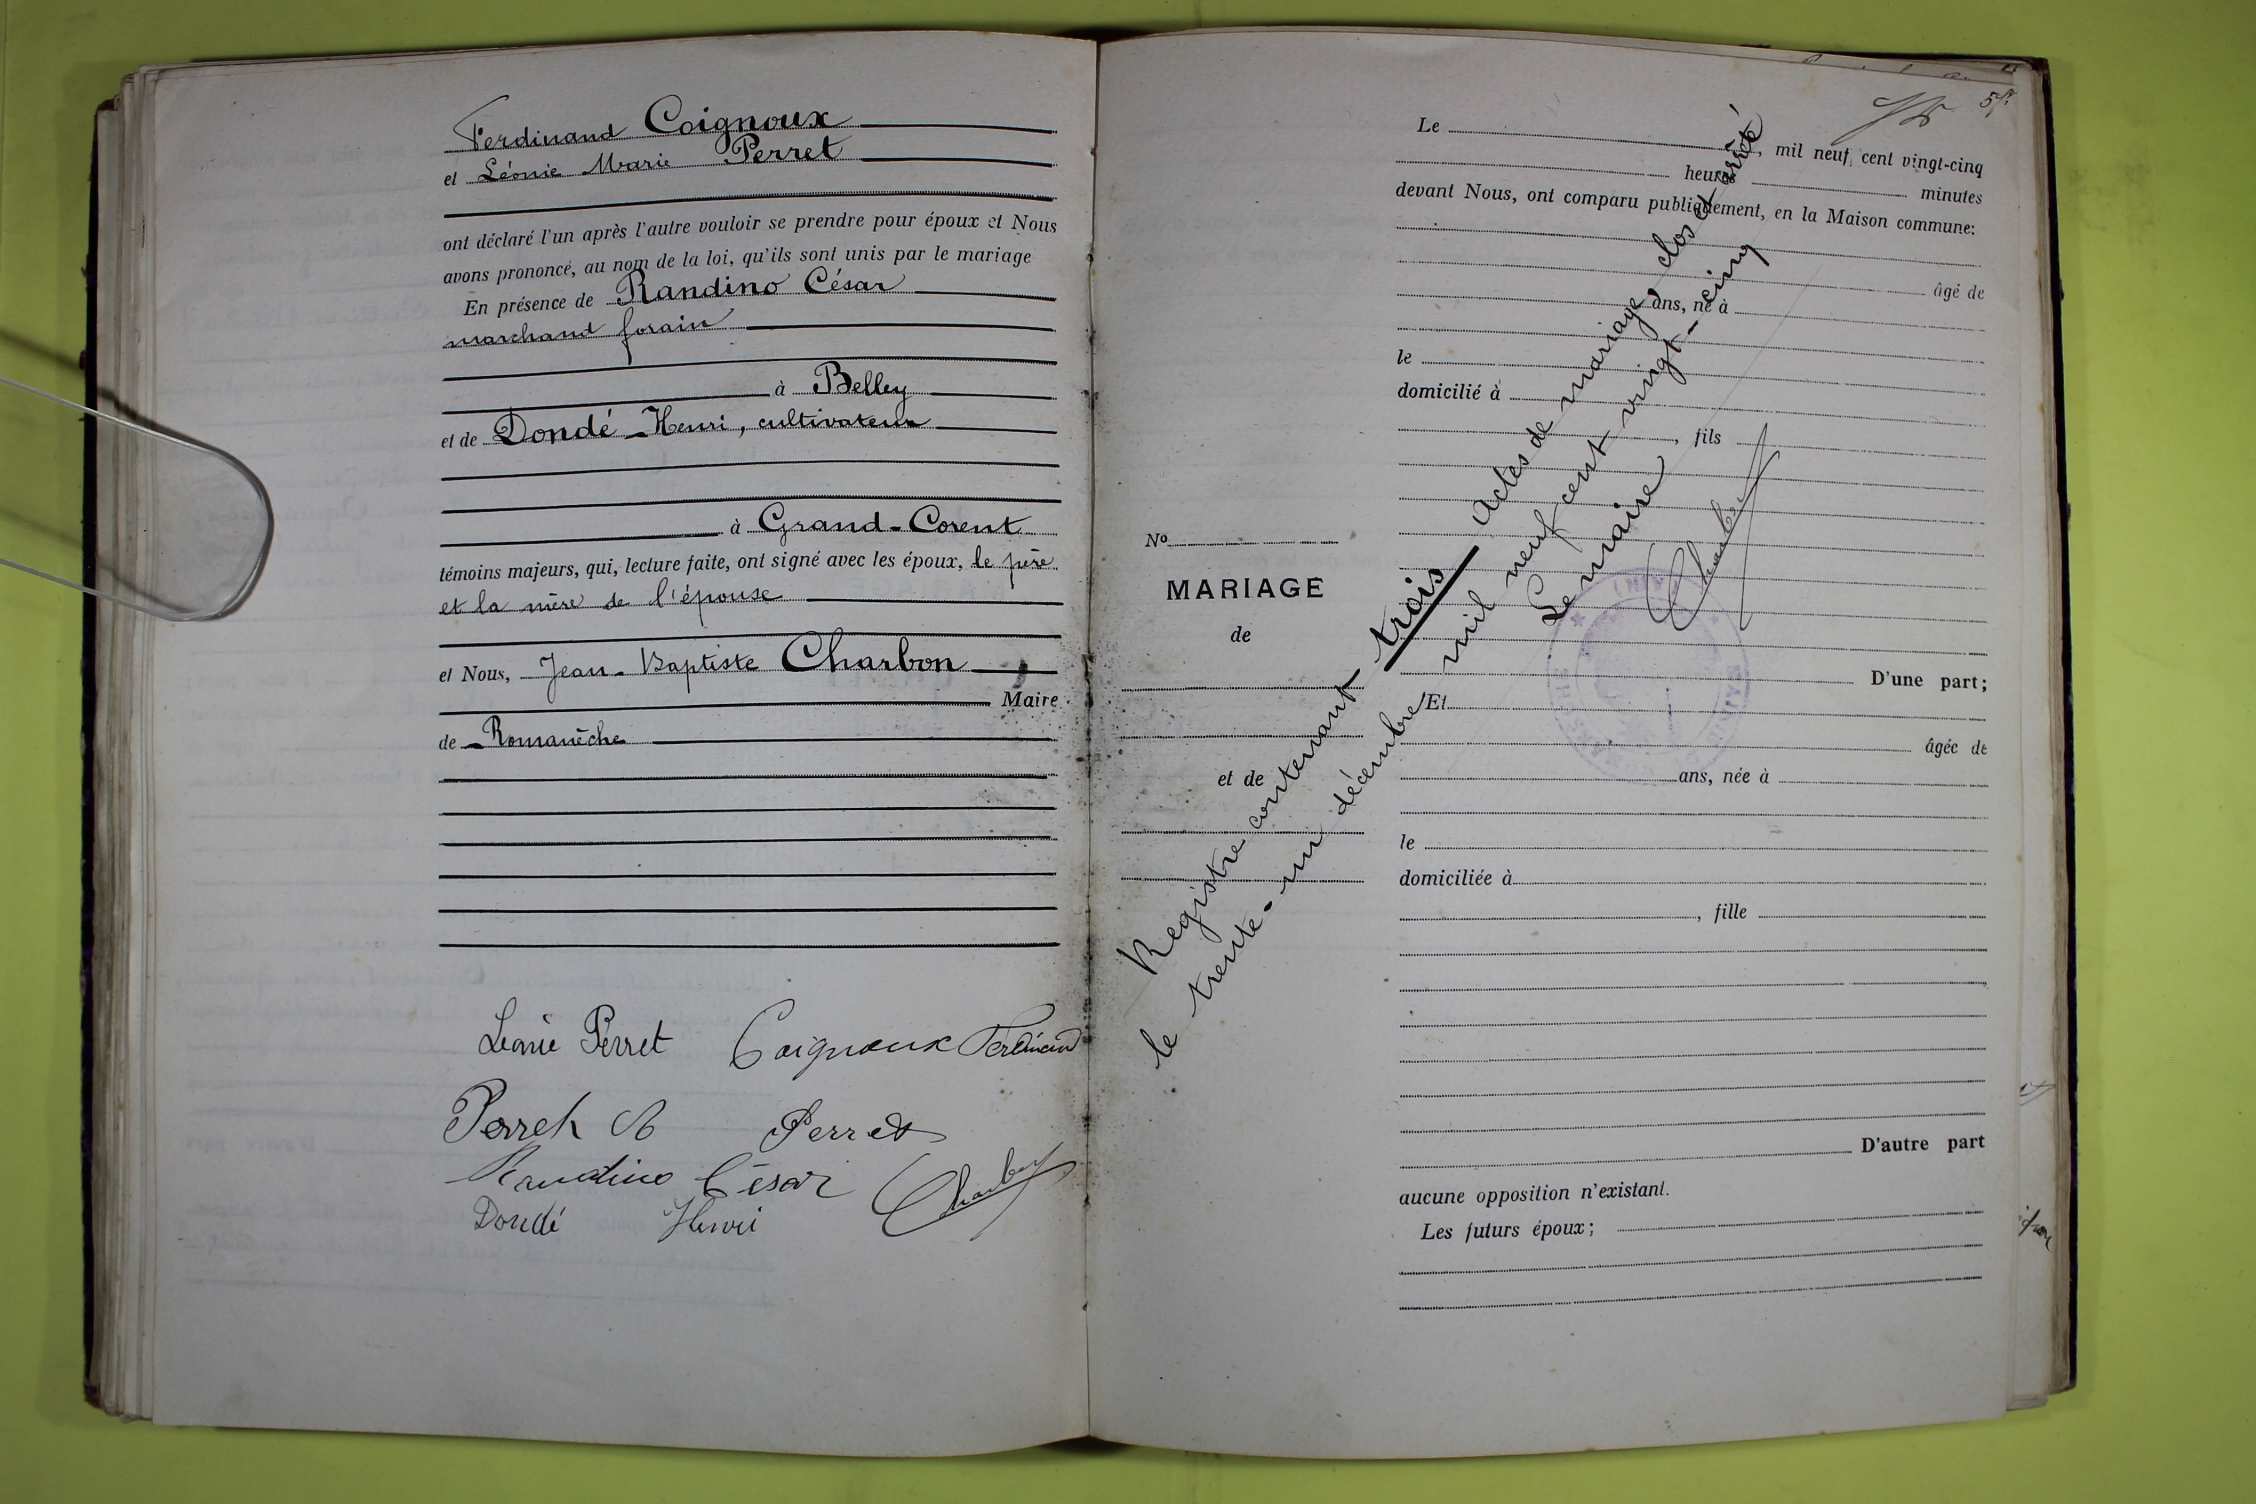 Ferdinand Coignoux
et Léonie Marie Perret
ont déclaré l'un après l'autre vouloir se prendre pour époux et Nous
avons prononcé, au nom de la loi, qu'ils sont unis par le mariage
En présence de Randino César
marchand forain
à Belley
et de Dondé Henri, cultivateur
à Grand-Corent
témoins majeurs, qui, lecture faite, ont signé avec les époux, le père
et la mère de l'épouse
et Nous, Jean-Baptiste Charbon
Maire
de Romanèche
Léonie Perret Coignoux Ferdinand
Perret Perret
Randino César
Dondé Henri Charbon
Le , mil neuf cent vingt-cinq
heures minutes
devant Nous, ont comparu publiquement, en la Maison commune:
âgé de
ans, né à
le
domicilié à
, fils
D'une part;
Et
âgée de
ans, née à
le
domiciliée à
, fille
D'autre part
aucune opposition n'existant.
Les futurs époux;
No
MARIAGE
de
et de
Registre contenant trois actes de mariage, clos et arrêté
le trente-un décembre mil neuf cent vingt-cinq
Le maire
Charbon